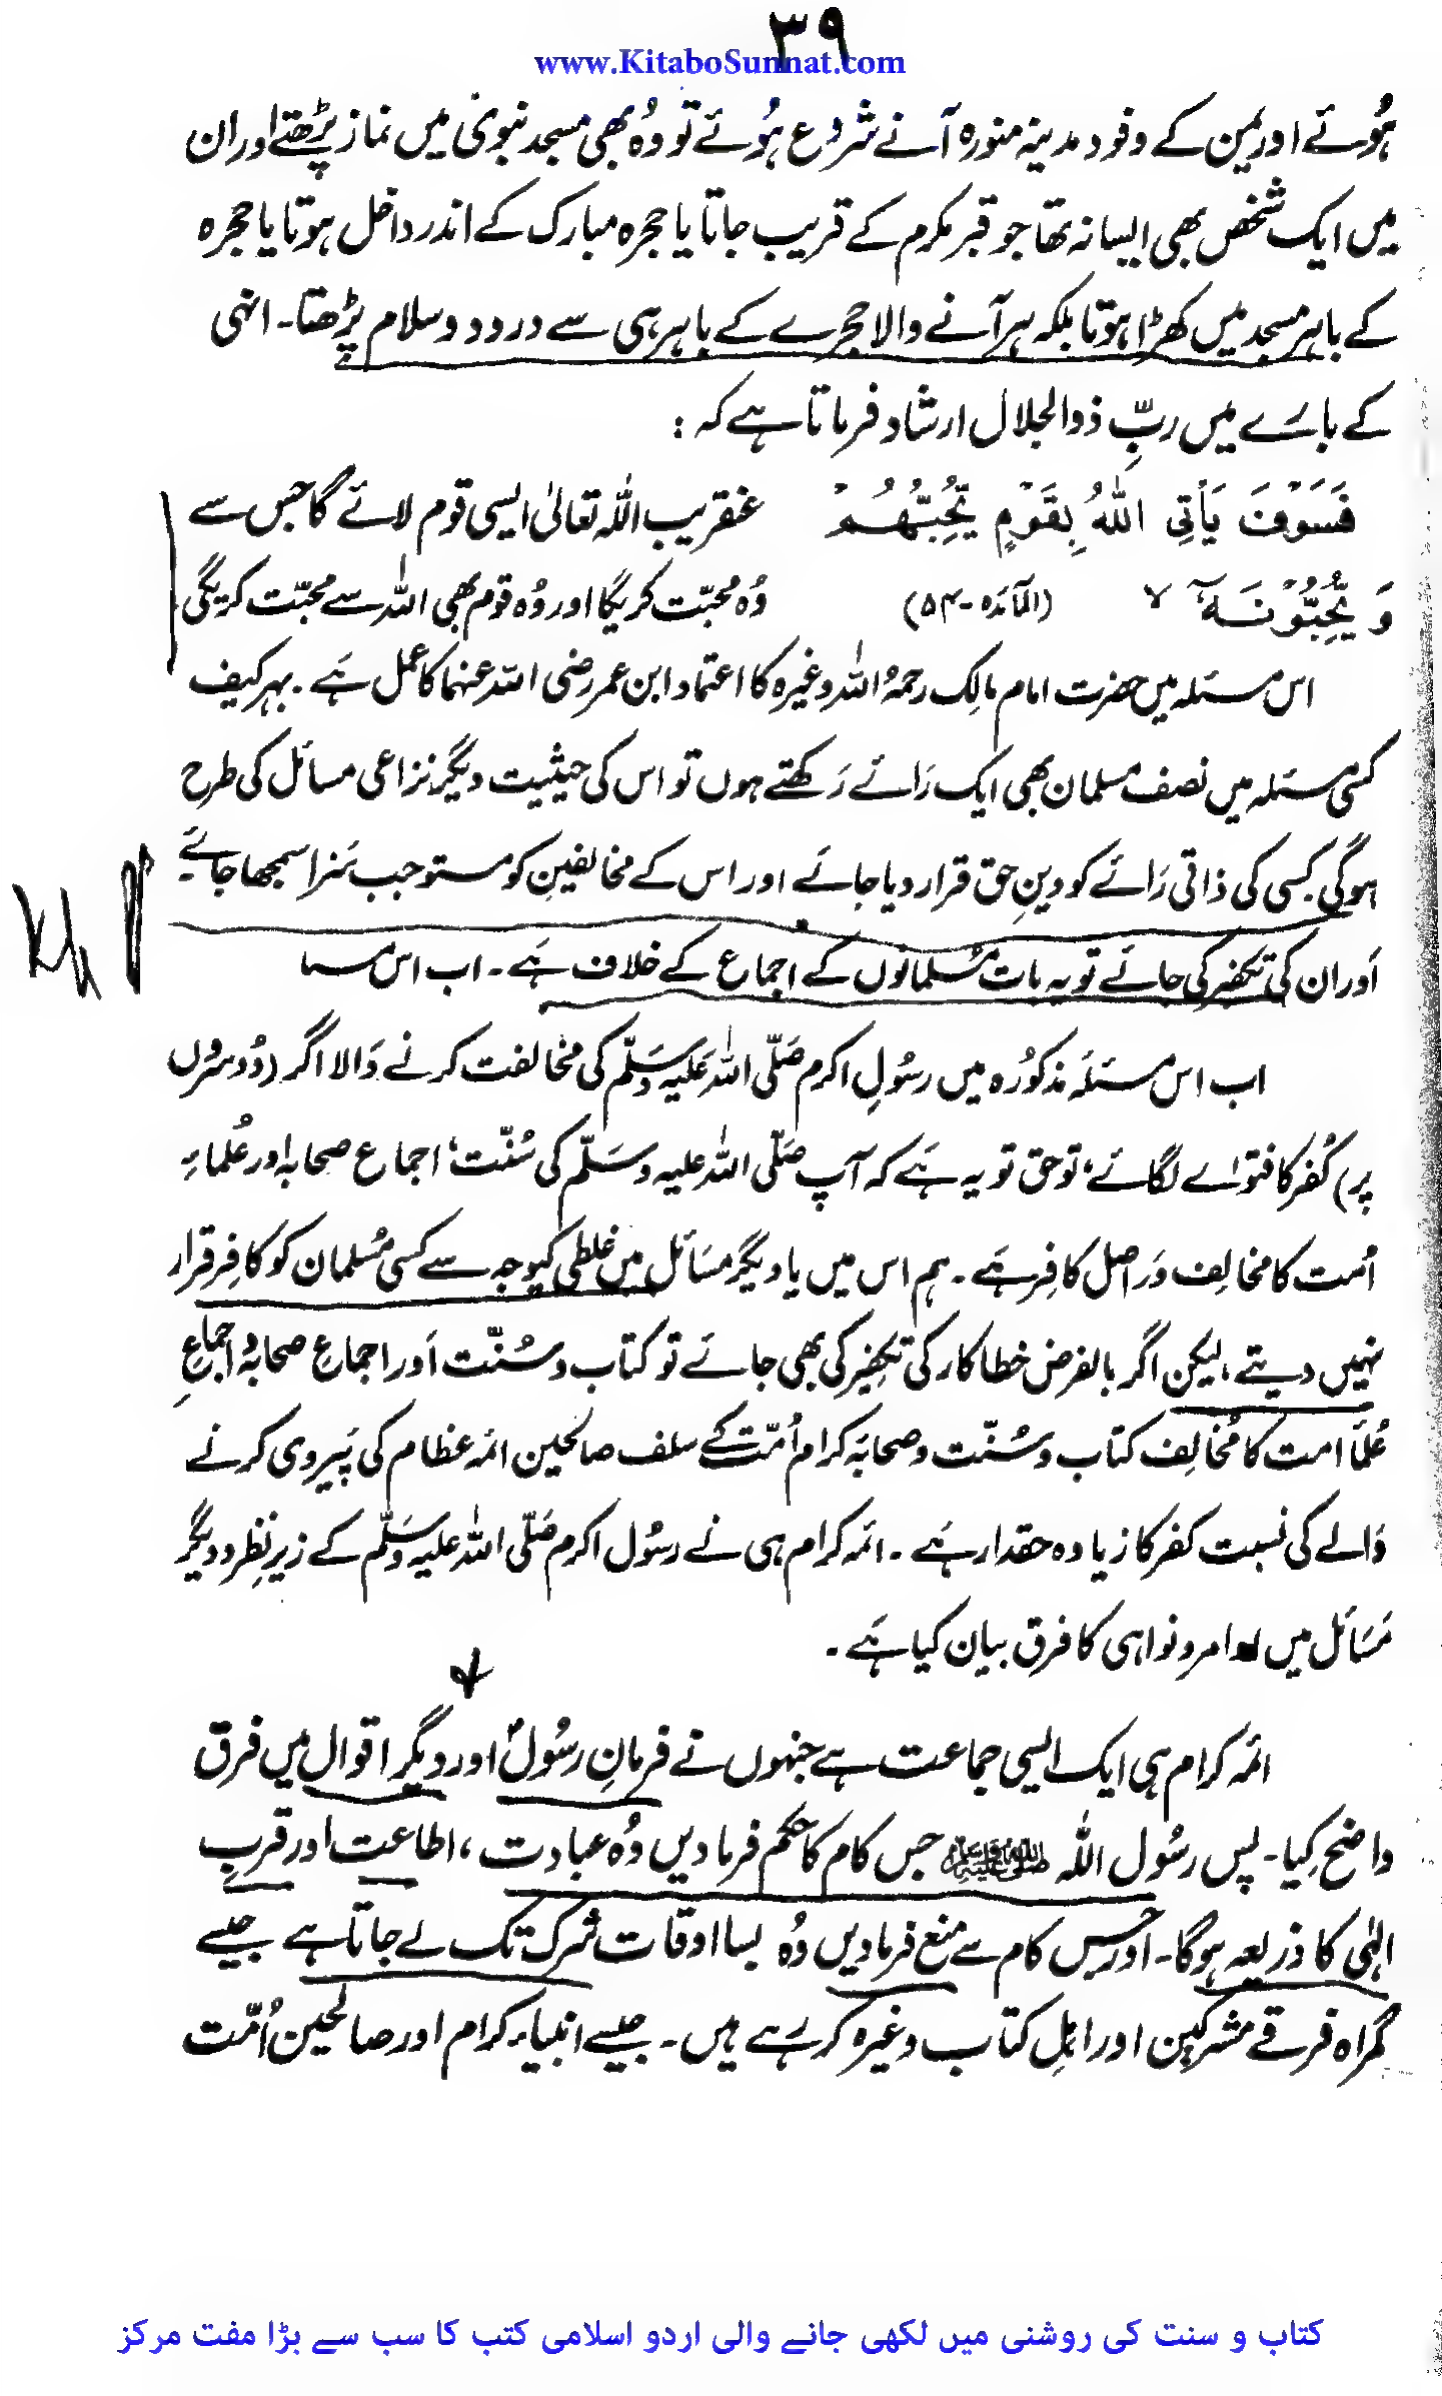 ۳۹
www.KitaboSunnat.com
ہُوئے اور یمن کے وفود مدینہ منورہ آنے شروع ہُوئے تو وُہ بھی مسجد نبویؐ میں نماز پڑھتے اور ان
میں ایک شخص بھی ایسا نہ تھا جو قبر مکرم کے قریب جاتا یا حجرہ مبارک کے اندر داخل ہوتا یا حجرہ
کے باہر مسجد میں کھڑا ہوتا بلکہ ہر آنے والا حجرے کے باہر ہی سے درود و سلام پڑھتا۔ انہی
کے بارے میں ربِّ ذوالجلال ارشاد فرماتا ہے کہ :
فَسَوْفَ يَأْتِی اللّٰهُ بِقَوْمٍ يُّحِبُّهُمْ عنقریب اللہ تعالیٰ ایسی قوم لائے گا جس سے
وَ يُحِبُّوْنَهٗۤ ۙ (المائدہ-۵۴) وُہ محبّت کریگا اور وُہ قوم بھی اللہ سے محبّت کریگی
اس مسئلہ میں حضرت امام مالِک رحمہُ اللہ وغیرہ کا اعتماد ابن عمر رضی اللہ عنہما کا عمل ہَے ۔ بہرکیف
کسی مسئلہ میں نصف مسلمان بھی ایک رَائے رَکھتے ہوں تو اس کی حیثیت دیگر نزاعی مسائل کی طرح
ہوگی کسی کی ذاتی رَائے کو دینِ حق قرار دیا جائے اور اس کے مخالفینِ کو مستوجب سَزا سمجھا جائے۔
اَور ان کی تکفیر کی جائے تو یہ بات مُسلمانوں کے اجماع کے خلاف ہَے ۔ اب اس مسا
اب اس مسئلہَ مذکورُہ میں رسُولِ اکرم صَلّی اللہ عَلیہ وسَلّم کی مخالفت کرنے وَالا اگر (دُوسروں
پر) کُفر کا فتوٰے لگائے، تو حق تو یہ ہَے کہ آپ صَلّی اللہ علیہ وسَلّم کی سُنّت، اجماع صحابہؓ اور عُلمائے
اُمت کا مخالِف دَراصل کافِر ہَے ۔ ہم اس میں یا دیگر مسَائل میں غلطی کیوجہ سے کسی مُسلمان کو کافِر قرار
نہیں دیتے، لیکن اگر بالفرض خطاکار کی تکفیر کی بھی جائے تو کتاب و سُنّت اَور اجماعِ صحابہؓ و اجماعِ
عُلمَا امت کا مُخالِف کتاب و سُنّت و صحابہَ کرام اُمّت کے سلف صالحین ائمہ عظام کی پَیروی کرنے
وَالے کی نسبت کفر کا زیادہ حقدار ہَے ۔ ائمہ کرام ہی نے رسُول اکرم صَلّی اللہ علیہ وسَلّم کے زیرِ نظر و دیگر
مَسَائل میں اوامر و نواہی کا فرق بیان کیا ہَے ۔
ائمہ کرام ہی ایک ایسی جماعت ہے جنہوں نے فرمانِ رسُولؐ اور دیگر اقوال میں فرق
واضح کِیا۔ پس رسُول اللہ ﷺ جس کام کا حکم فرما دیں وُہ عبادت، اطاعت اور قربِ
الٰہی کا ذریعہ ہوگا۔ اور جس کام سے منع فرما دیں وُہ بسا اوقات شرک تک لے جاتا ہے جیسے
گمراہ فرقے مشرکین اور اہلِ کتاب وغیرہ کر رہے ہیں۔ جیسے انبیاء کرام اور صالحین اُمّت
کتاب و سنت کی روشنی میں لکھی جانے والی اردو اسلامی کتب کا سب سے بڑا مفت مرکز